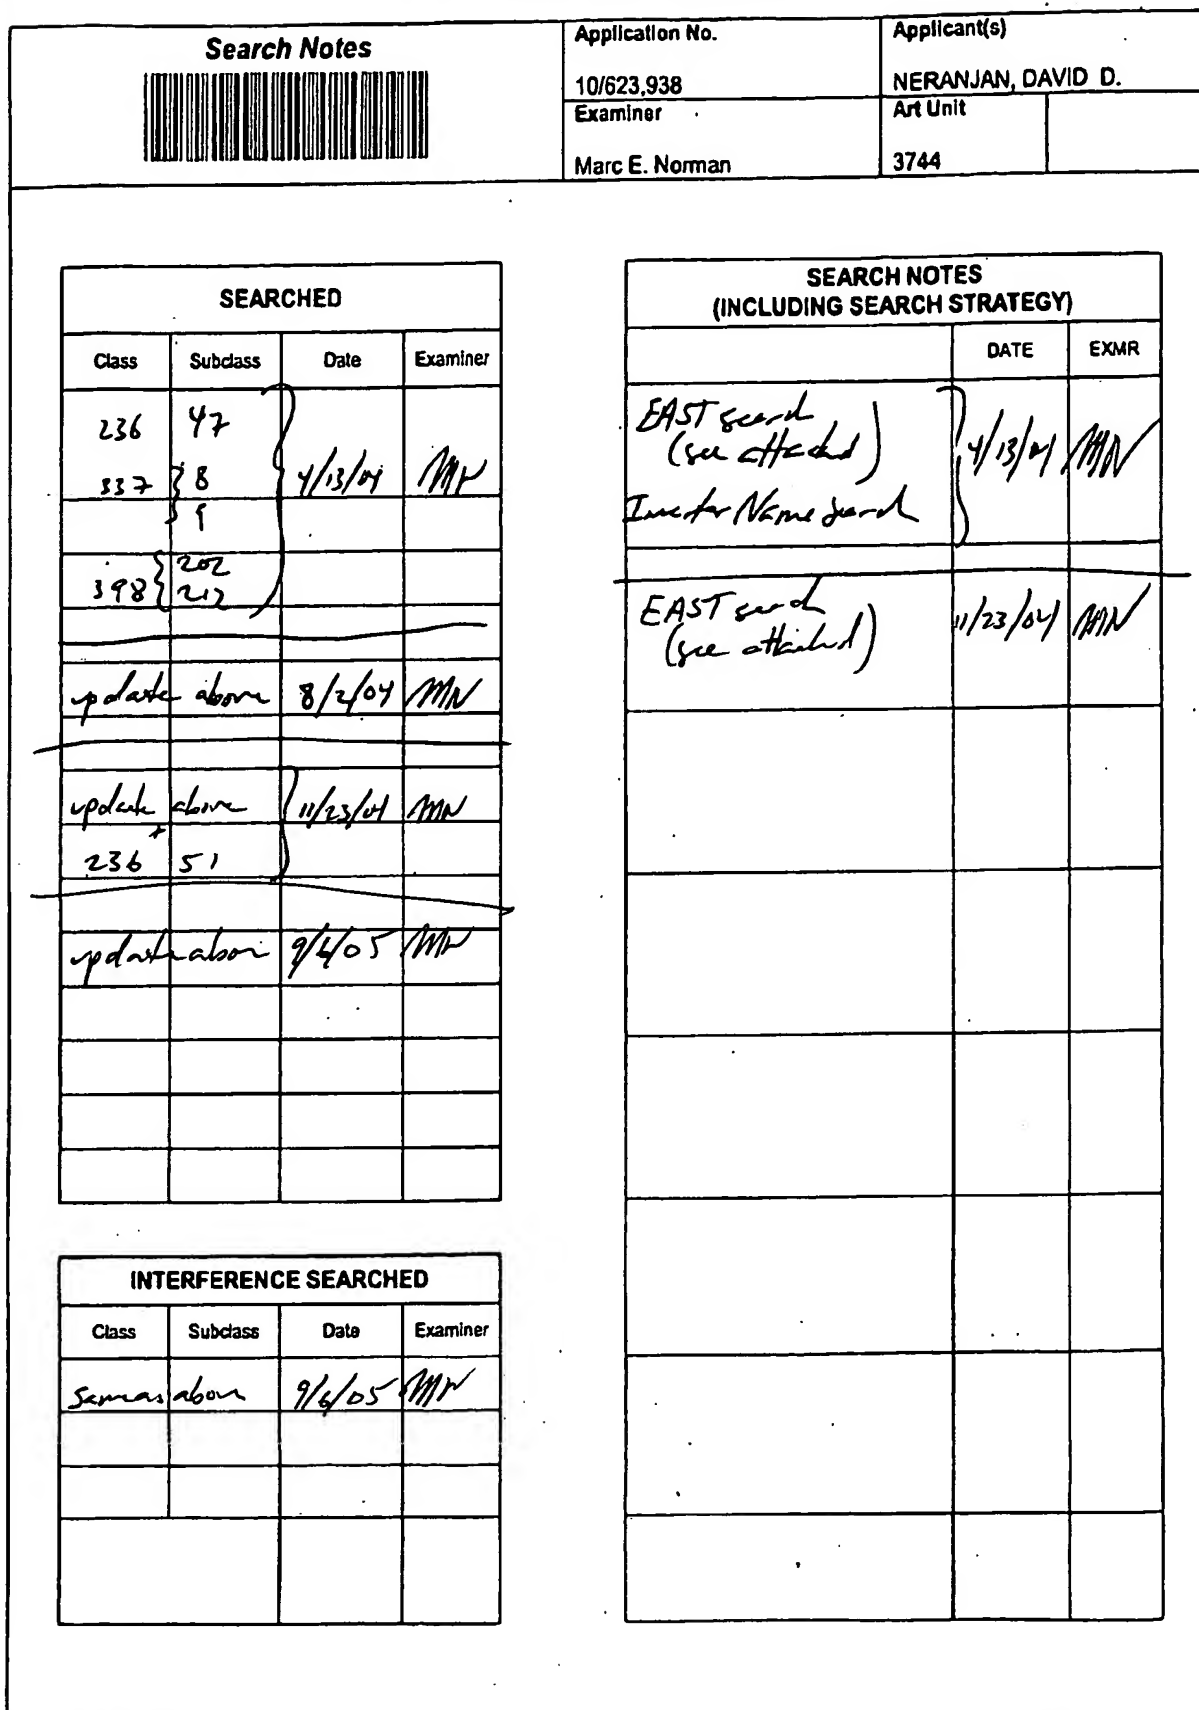 Search Notes
Application No.
Applicant(s)
10/623,938
NERANJAN, DAVID D.
Examiner
Art Unit
Marc E. Norman
3744
SEARCHED
Class Subclass Date Examiner
236 47
337 8 4/13/04 MN
9
398 202
212
update above 8/2/04 MN
update above 11/23/04 MN
+
236 51
update above 9/6/05 MN
INTERFERENCE SEARCHED
Class Subclass Date Examiner
Same as above 9/6/05 MN
SEARCH NOTES
(INCLUDING SEARCH STRATEGY)
DATE EXMR
EAST search
(see attached) 4/13/04 MN
Inventor Name search
EAST search
(see attached) 11/23/04 MN